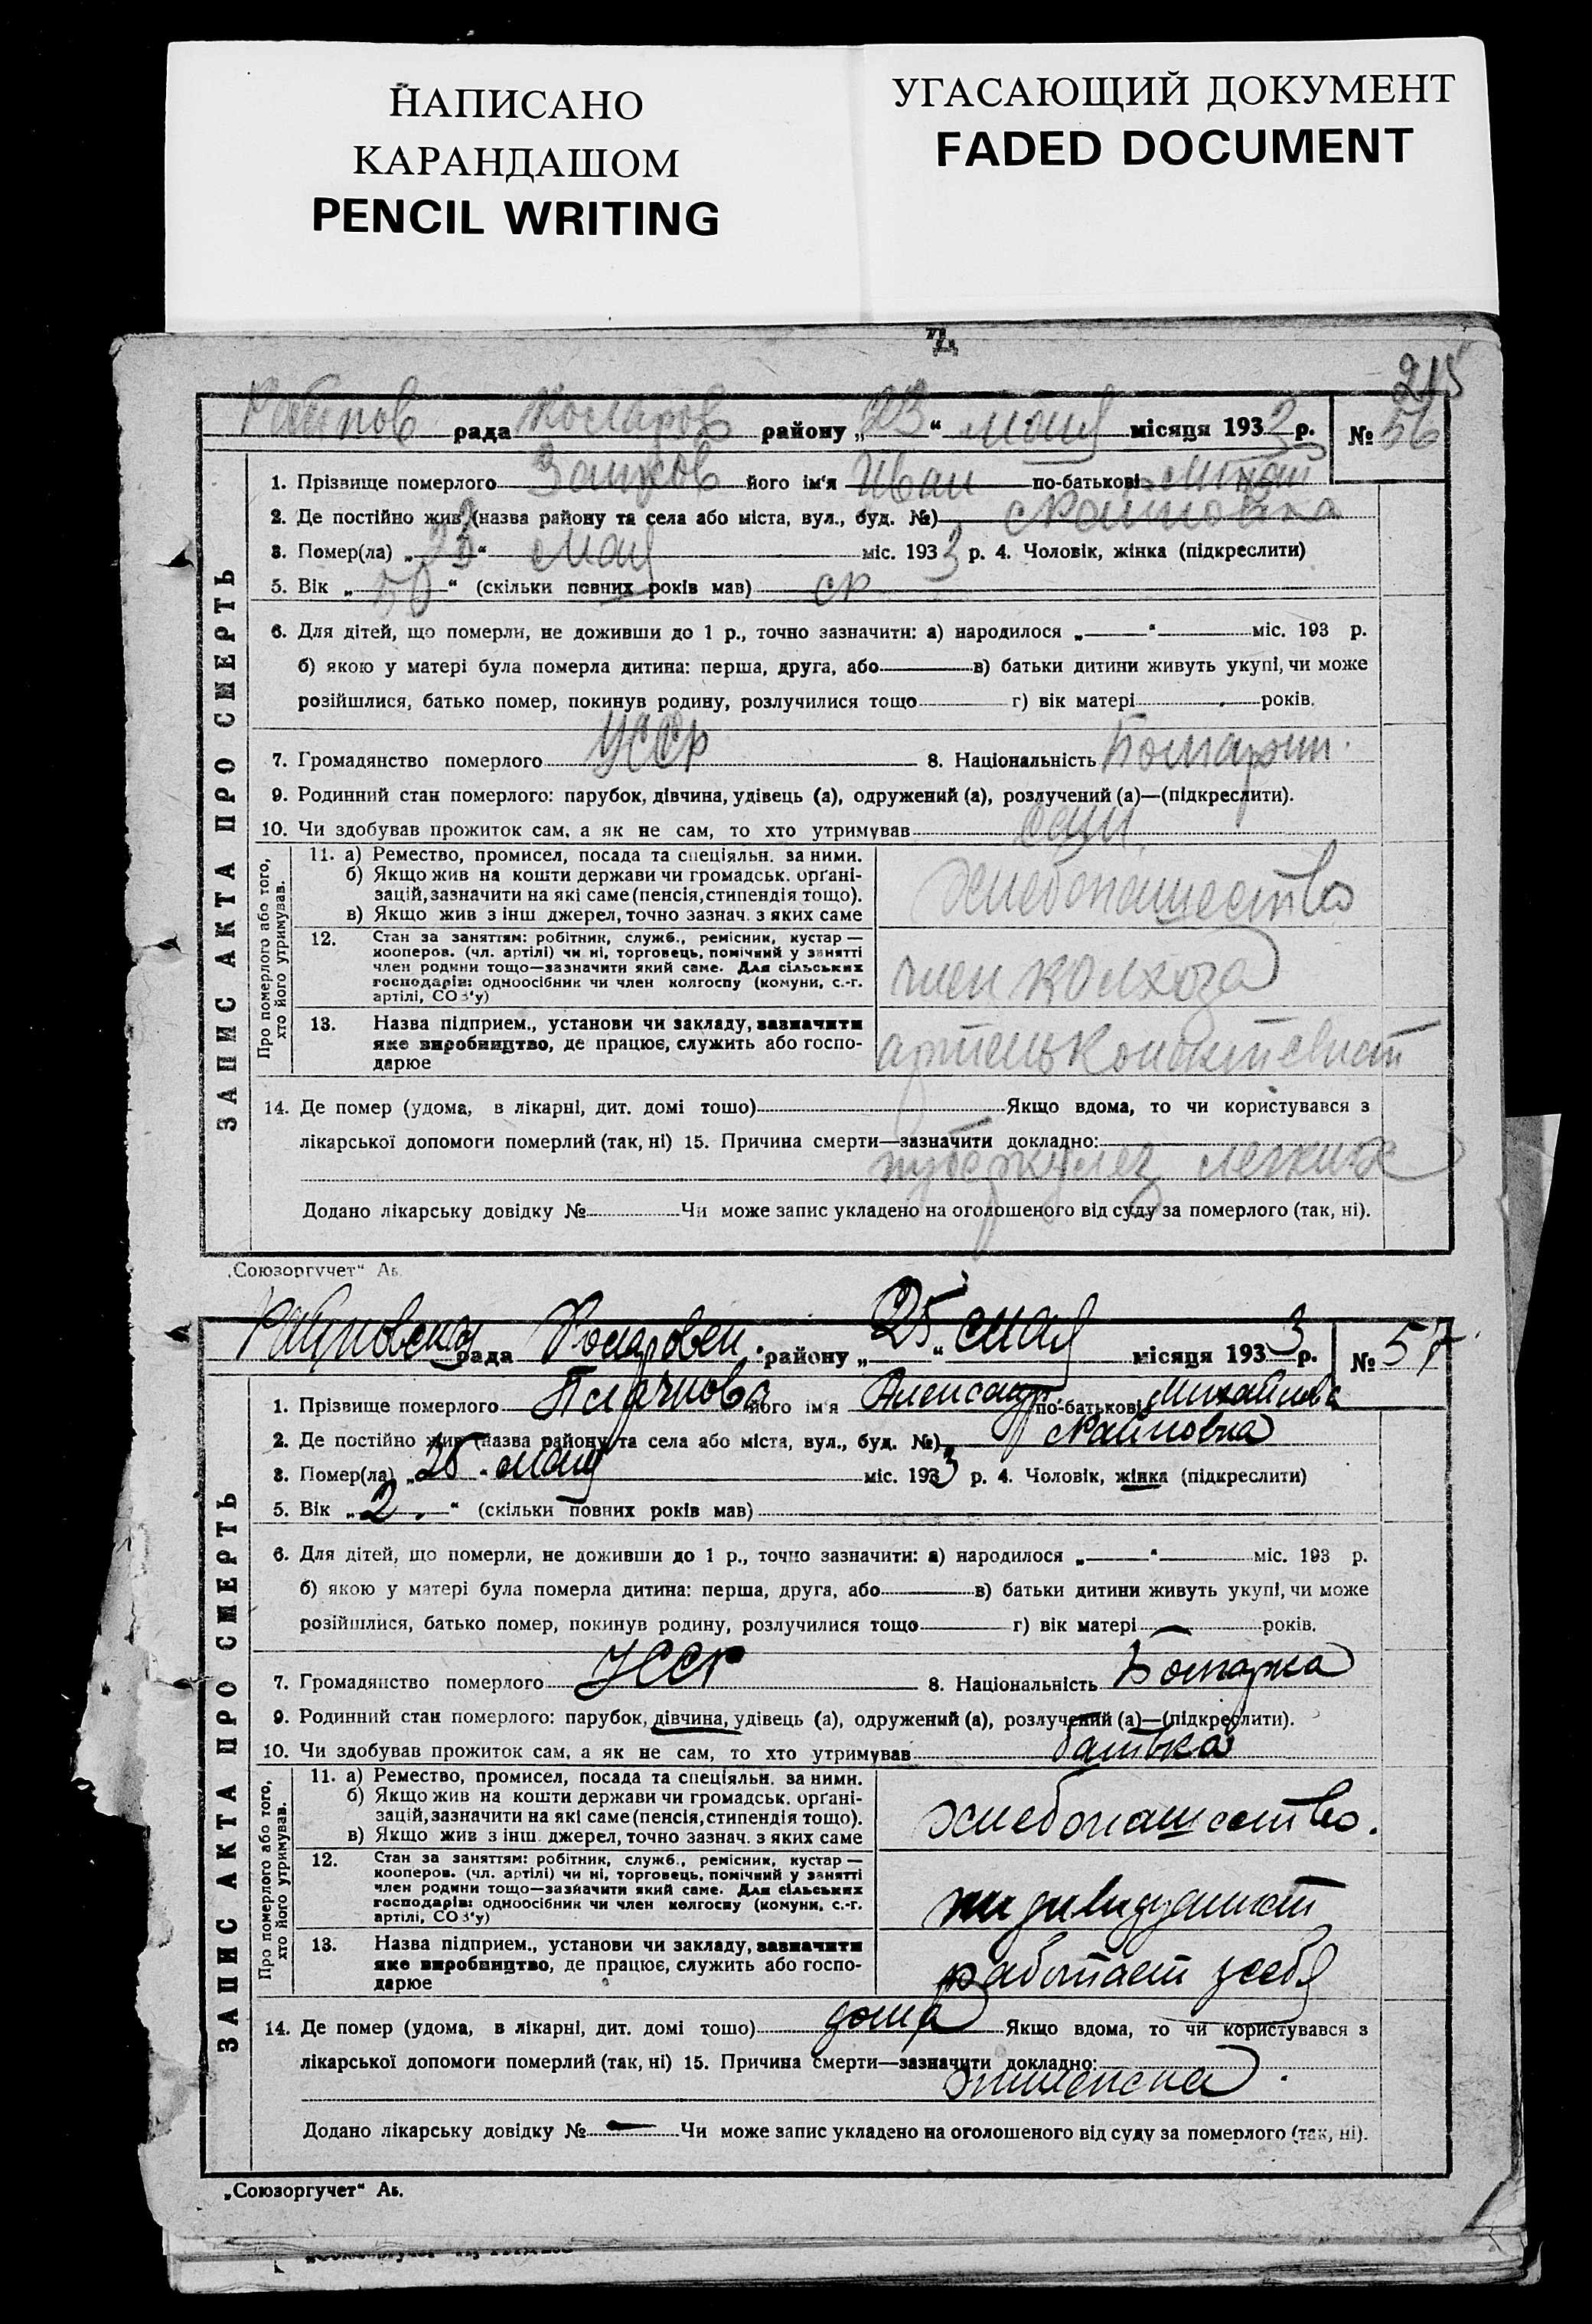 НАПИСАНО
КАРАНДАШОМ
PENCIL WRITING
УГАСАЮЩИЙ ДОКУМЕНТ
FADED DOCUMENT
215
рада район у „23“ мая місяця 1933 р. № 56
1. Прізвище померлого його ім'я Иван по-батькові
2. Де постійно жив (назва району та села або міста, вул., буд. №)
3. Помер(ла) „23“ мая міс. 1933 р. 4. Чоловік, жінка (підкреслити)
5. Вік „50“ (скільки повних років мав) ср
6. Для дітей, що померли, не доживши до 1 р., точно зазначити: а) народилося „ “ міс. 193 р.
б) якою у матері була померла дитина: перша, друга, або в) батьки дитини живуть укупі, чи може
розійшлися, батько помер, покинув родину, розлучилися тощо г) вік матері років.
7. Громадянство померлого УССР 8. Національність
9. Родинний стан померлого: парубок, дівчина, удівець (а), одружений (а), розлучений (а)—(підкреслити).
10. Чи здобував прожиток сам, а як не сам, то хто утримував сам
ЗАПИС АКТА ПРО СМЕРТЬ
Про померлого або того,
хто його утримував.
11. а) Ремество, промисел, посада та спеціяльн. за ними.
б) Якщо жив на кошти держави чи громадськ. орґані-
зацій, зазначити на які саме (пенсія, стипендія тощо).
в) Якщо жив з інш джерел, точно зазнач. з яких саме
хлебопашество
12. Стан за заняттям: робітник, служб., ремісник, кустар —
кооперов. (чл. артілі) чи ні, торговець, помічний у занятті
член родини тощо—зазначити який саме. Для сільських
господарів: одноосібник чи член колгоспу (комуни, с.-г.
артілі, СОЗ'у)
член колхоза
13. Назва підприєм., установи чи закладу, зазначити
яке виробництво, де працює, служить або госпо-
дарює
артель
14. Де помер (удома, в лікарні, дит. домі тощо) Якщо вдома, то чи користувався з
лікарської допомоги померлий (так, ні) 15. Причина смерти—зазначити докладно:
туберкулез легких
Додано лікарську довідку № Чи може запис укладено на оголошеного від суду за померлого (так, ні).
„Союзоргучет“ Аь.
рада району „25“ мая місяця 1933 р. № 57
1. Прізвище померлого його ім'я Александр. по-батькові Михайлова
2. Де постійно жив (назва району та села або міста, вул., буд. №)
3. Помер(ла) „25“ мая міс. 1933 р. 4. Чоловік, жінка (підкреслити)
5. Вік „2.“ (скільки повних років мав)
6. Для дітей, що померли, не доживши до 1 р., точно зазначити: а) народилося „ “ міс. 193 р.
б) якою у матері була померла дитина: перша, друга, або в) батьки дитини живуть укупі, чи може
розійшлися, батько помер, покинув родину, розлучилися тощо г) вік матері років.
7. Громадянство померлого УССР 8. Національність Болгарка
9. Родинний стан померлого: парубок, дівчина, удівець (а), одружений (а), розлучений (а)—(підкреслити).
10. Чи здобував прожиток сам, а як не сам, то хто утримував батька
ЗАПИС АКТА ПРО СМЕРТЬ
Про померлого або того,
хто його утримував.
11. а) Ремество, промисел, посада та спеціяльн. за ними.
б) Якщо жив на кошти держави чи громадськ. орґані-
зацій, зазначити на які саме (пенсія, стипендія тощо).
в) Якщо жив з інш джерел, точно зазнач. з яких саме
хлебопашество.
12. Стан за заняттям: робітник, служб., ремісник, кустар —
кооперов. (чл. артілі) чи ні, торговець, помічний у занятті
член родини тощо—зазначити який саме. Для сільських
господарів: одноосібник чи член колгоспу (комуни, с.-г.
артілі, СОЗ'у)
индивидуалист
13. Назва підприєм., установи чи закладу, зазначити
яке виробництво, де працює, служить або госпо-
дарює
работает у себя
14. Де помер (удома, в лікарні, дит. домі тощо) дома Якщо вдома, то чи користувався з
лікарської допомоги померлий (так, ні) 15. Причина смерти—зазначити докладно:
Додано лікарську довідку № — Чи може запис укладено на оголошеного від суду за померлого (так, ні).
„Союзоргучет“ Аь.